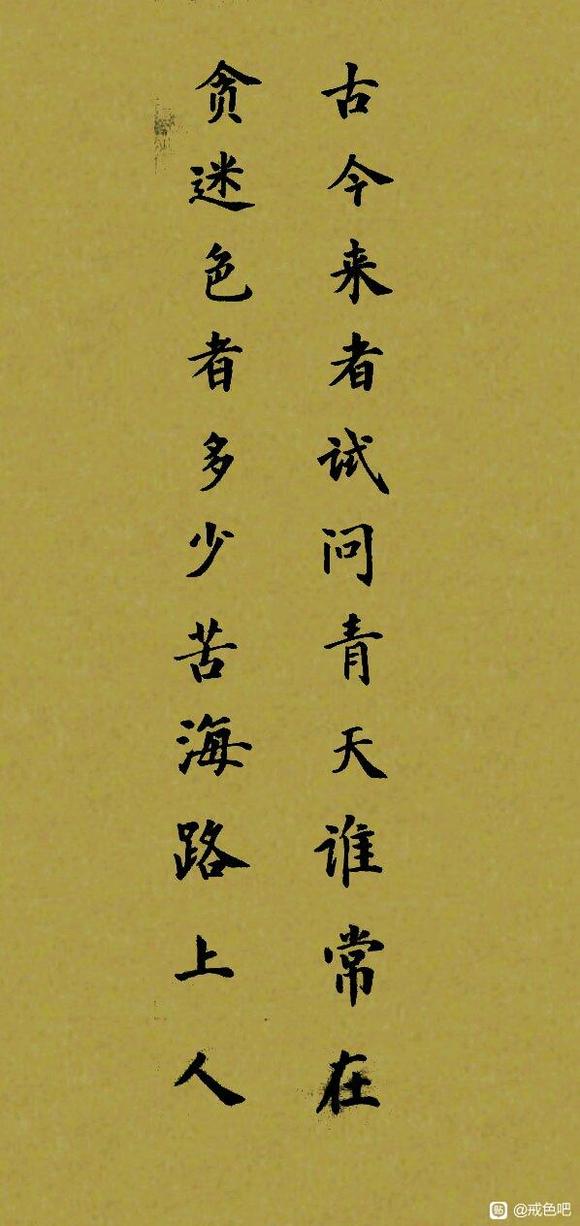 古今来者试问青天谁常在
贪迷色者多少苦海路上人
贴 @戒色吧